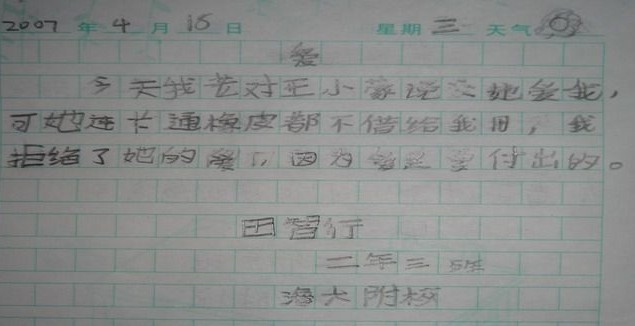 2007 年 4 月 18 日 星期 三 天气
爱
今天我对王小蒙说她爱我，
可她连卡通橡皮都不借给我用，我
拒绝了她的爱了，因为爱是要付出的。
田智行
二年三班
海大附校